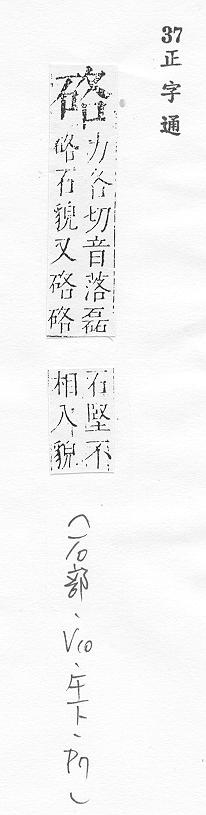 37正字通
硌
力各切音落磊
硌石貌又硌硌
石堅不
相入貌
(石部、V10、午下、P7)